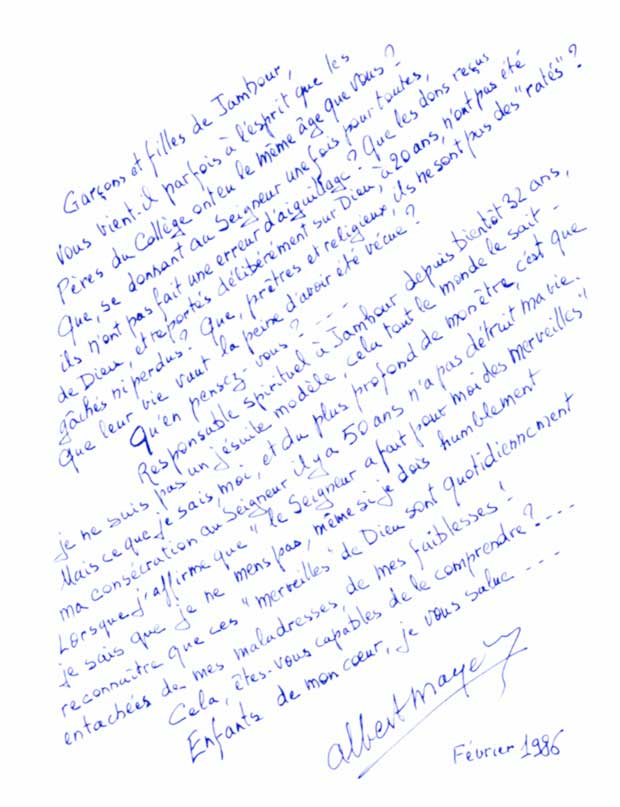 Garçons et filles de Jamhour,
Vous vient-il parfois à l'esprit que les
Pères du Collège ont eu le même âge que vous?
Que, se donnant au Seigneur une fois pour toutes,
ils n'ont pas fait une erreur d'aiguillage? Que les dons reçus
de Dieu, et reportés délibérément sur Dieu, à 20 ans, n'ont pas été
gâchés ni perdus? Que, prêtres et religieux, ils ne sont pas des "ratés"?
Que leur vie vaut la peine d'avoir été vécue?
Qu'en pensez-vous? ----
Responsable spirituel à Jamhour depuis bientôt 32 ans,
je ne suis pas un jésuite modèle, cela tout le monde le sait -
Mais ce que je sais moi, et du plus profond de mon être, c'est que
ma consécration au Seigneur il y a 50 ans n'a pas détruit ma vie.
Lorsque j'affirme que "le Seigneur a fait pour moi des merveilles"
je sais que je ne mens pas, même si je dois humblement
reconnaître que ces "merveilles" de Dieu sont quotidiennement
entachées de mes maladresses de mes faiblesses!
Cela, êtes-vous capables de le comprendre? ----
Enfants de mon cœur, je vous salue ---
albert mayer
Février 1986